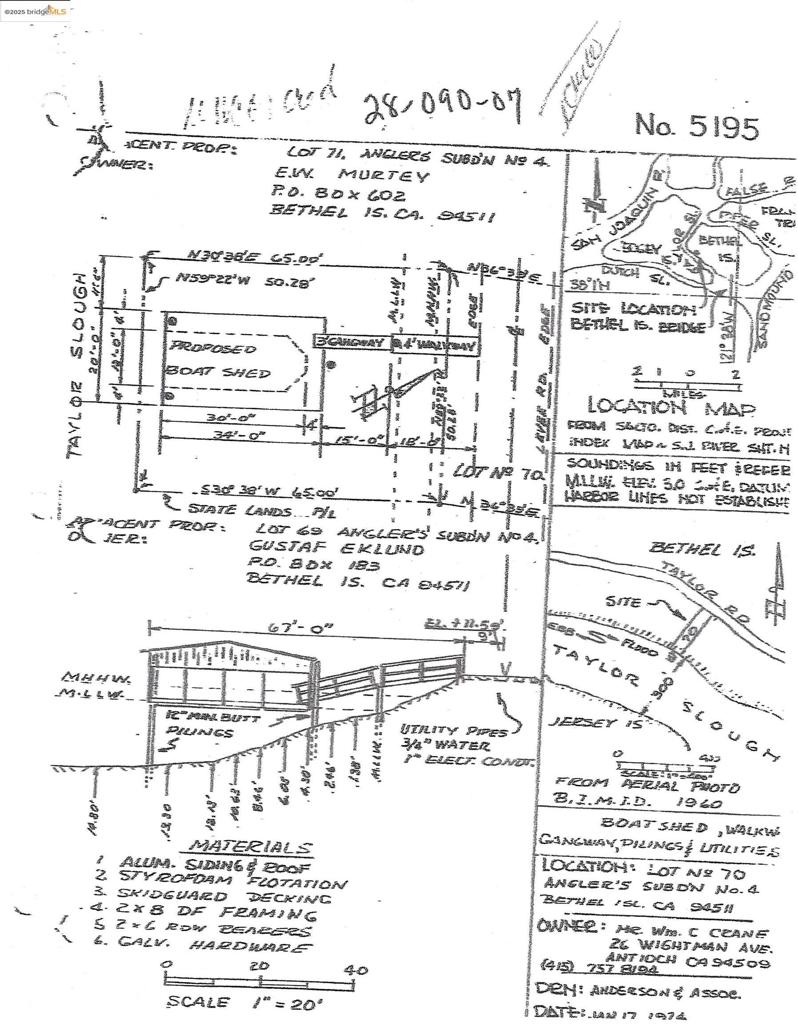 ©2025 bridgeMLS
28-090-07
No. 5195
CENT. PROP:
OWNER:
LOT 71, ANGLERS SUBD'N Nº 4.
E.W. MURTEY
P.O. BOX 602
BETHEL IS. CA. 94511
N30°38'E 65.00'
N59°22'W 50.28'
N36°35'E
TAYLOR SLOUGH
20'-0"
12'-0"
4'
4'
M.L.L.W.
M.H.H.W.
EDGE
LEVEE RD. EDGE
PROPOSED
BOAT SHED
3' GANGWAY
4' WALKWAY
30'-0"
4'
34'-0"
15'-0"
18'-0"
50.28'
LOT Nº 70
S30°38'W 65.00'
N 36°35'E
STATE LANDS P/L
ADJACENT PROP:
LOT 69 ANGLER'S SUBD'N Nº 4,
GUSTAF EKLUND
P.O. BOX 183
BETHEL IS. CA 94511
SAN JOAQUIN R.
FALSE R
PIPER SL.
FRAN
TR
BETHEL
IS.
DUTCH SL.
38°1'N
SAND MOUND
SITE LOCATION
BETHEL IS. BRIDGE
2 1 0 2
MILES
LOCATION MAP
FROM SACTO. DIST. C. of E. PROJ
INDEX MAP S.J. RIVER SHT. N
SOUNDINGS IN FEET & REFER
M.L.L.W. ELEV. 3.0 C of E, DATUM
HARBOR LINES NOT ESTABLISHE
BETHEL IS.
TAYLOR RD
SITE
EBB FLOOD
TAYLOR SLOUGH
300'
JERSEY IS
0 400
SCALE: 1"=400'
FROM AERIAL PHOTO
B.I.M.I.D. 1960
67'-0"
EL. +11.50'
9'
M.H.H.W.
M.L.L.W.
12" MIN. BUTT
PILINGS
UTILITY PIPES
3/4" WATER
1" ELECT. CONDT.
14.80'
13.30
12.13'
10.63'
8.46'
6.05'
4.30'
2.46'
1.38'
M.L.L.W.
MATERIALS
1 ALUM. SIDING & ROOF
2 STYROFOAM FLOTATION
3. SKIDGUARD DECKING
4. 2X8 DF FRAMING
5 2X6 RDW BEARERS
6. GALV. HARDWARE
0 20 40
SCALE 1" = 20'
BOAT SHED, WALKW
GANGWAY, PILINGS & UTILITIES
LOCATION: LOT Nº 70
ANGLER'S SUBD'N No. 4
BETHEL ISL. CA 94511
OWNER: MR Wm. C CRANE
26 WIGHTMAN AVE.
ANTIOCH CA 94509
(415) 757 8194
DRN: ANDERSON & ASSOC.
DATE: JAN 17 1974